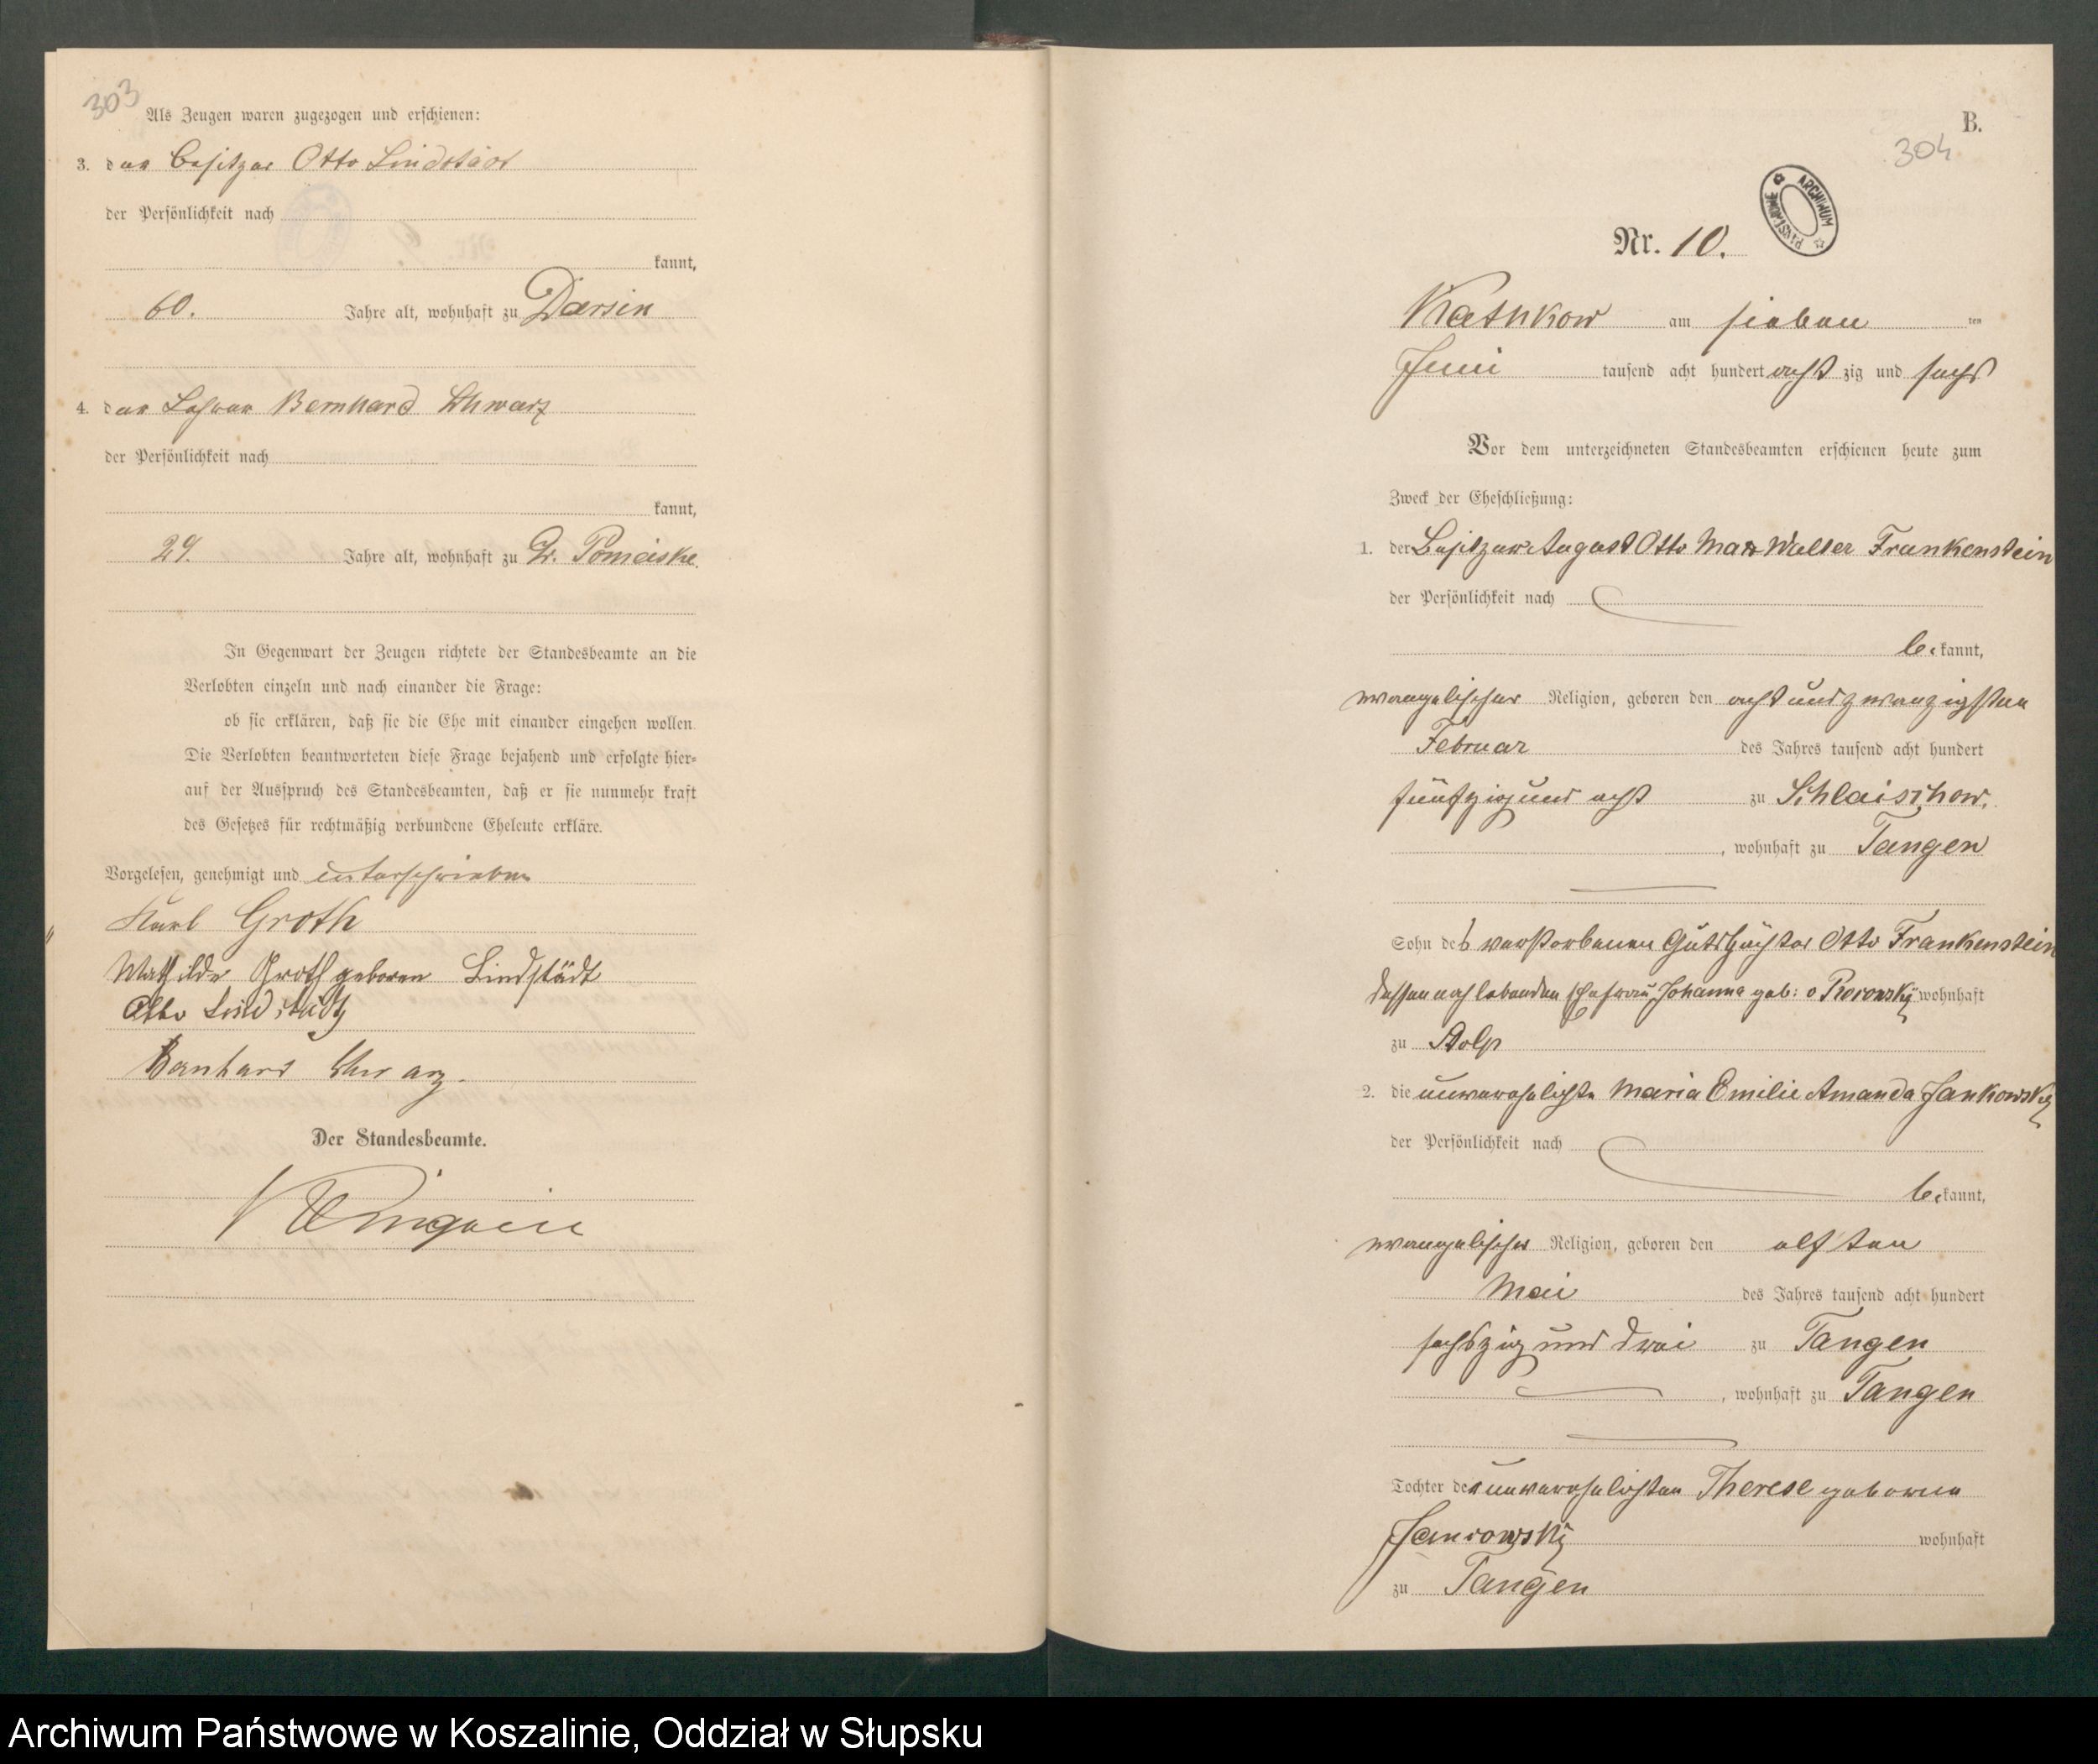 303
Als Zeugen waren zugezogen und erschienen:
3. der Besitzer Otto Lindstädt
der Persönlichkeit nach
kannt,
60. Jahre alt, wohnhaft zu Darsin
4. der Lehrer Bernhard Schwarz
der Persönlichkeit nach
kannt,
29. Jahre alt, wohnhaft zu Gr. Pomeiske
In Gegenwart der Zeugen richtete der Standesbeamte an die
Verlobten einzeln und nach einander die Frage:
ob sie erklären, daß sie die Ehe mit einander eingehen wollen
Die Verlobten beantworteten diese Frage bejahend und erfolgte hier-
auf der Ausspruch des Standesbeamten, daß er sie nunmehr kraft
des Gesetzes für rechtmäßig verbundene Eheleute erkläre.
Vorgelesen, genehmigt und unterschrieben
Karl Groth
Mathilde Groth geboren Lindstädt
Otto Lindstädt
Bernhard Schwarz.
Der Standesbeamte.
B.
304
ARCHIWUM PAŃSTWOWE
Nr. 10.
Kathkow am sieben ten
Juni tausend acht hundert acht zig und sechs
Vor dem unterzeichneten Standesbeamten erschienen heute zum
Zweck der Eheschließung:
1. der Besitzer August Otto Max Walter Frankenstein
der Persönlichkeit nach
be kannt,
evangelischer Religion, geboren den acht und zwanzigsten
Februar des Jahres tausend acht hundert
fünfzig und acht zu Schlaischow.
, wohnhaft zu Tangen
Sohn des verstorbenen Gutspächter Otto Frankenstein
dessen noch lebenden Ehefrau Johanna geb: wohnhaft
zu Stolp
2. die unverehelichte Maria Emilie Amanda Jankowsky
der Persönlichkeit nach
be kannt,
evangelischer Religion, geboren den elften
Mai des Jahres tausend acht hundert
sechszig und drei zu Tangen
, wohnhaft zu Tangen
Tochter der unverehelichten Therese geborene
Jankowsky wohnhaft
zu Tangen
Archiwum Państwowe w Koszalinie, Oddział w Słupsku